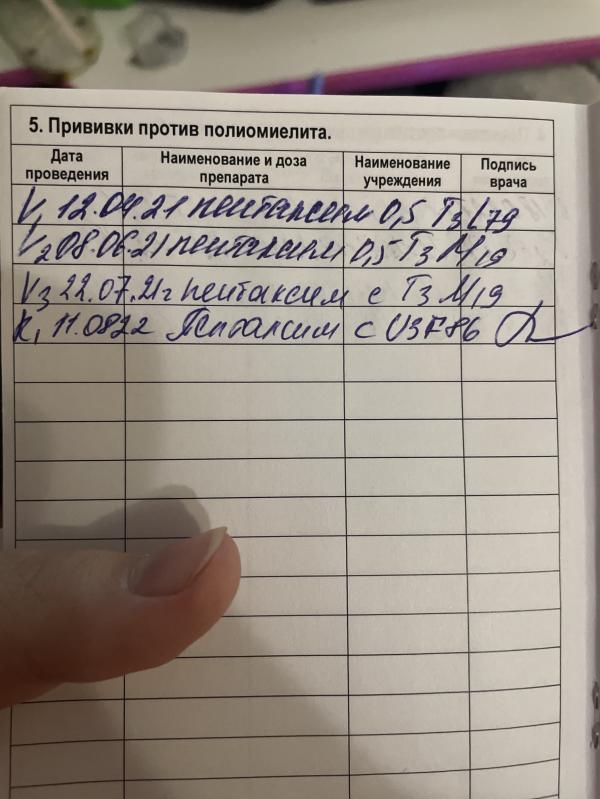 5. Прививки против полиомиелита.
Дата проведения Наименование и доза препарата Наименование учреждения Подпись врача
V1 12.04.21 пентаксим 0,5 T3L79
V2 08.06.21 пентаксим 0,5 T3M19
V3 22.07.21г пентаксим с T3M19
R1 11.0822 Пентаксим с U3F86